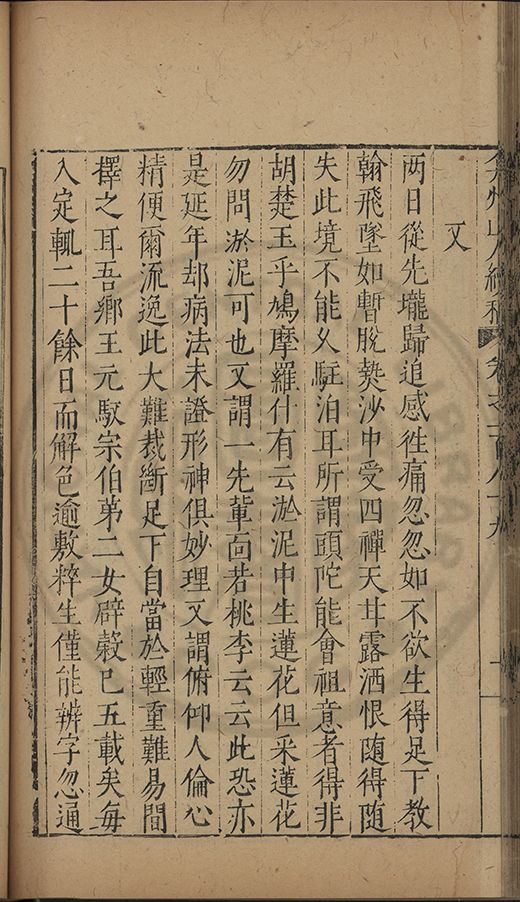 又
两日從先壠歸追感徃痛忽忽如不欲生得足下教
翰飛墜如暫脫𤍠沙中受四禪天甘露洒恨随得随
失此境不能乆駐泊耳所謂頭陀能會祖意者得非
胡楚王乎鳩摩羅什有云淤泥中生蓮花但采蓮花
勿問淤泥可也又謂一先軰靣若桃李云云此恐亦
是延年却病法未證形神俱妙理又謂俯仰人倫心
精便爾流逸此大難裁斷足下自當於輕重難易間
擇之耳吾鄉王元馭宗伯苐二女辟榖已五載矣每
入定輒二十餘日而觧色逾敷粹生僅能辨字忽通